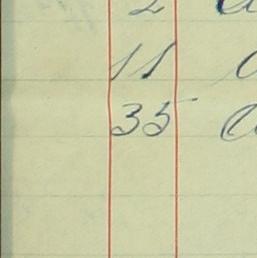 2
11
35